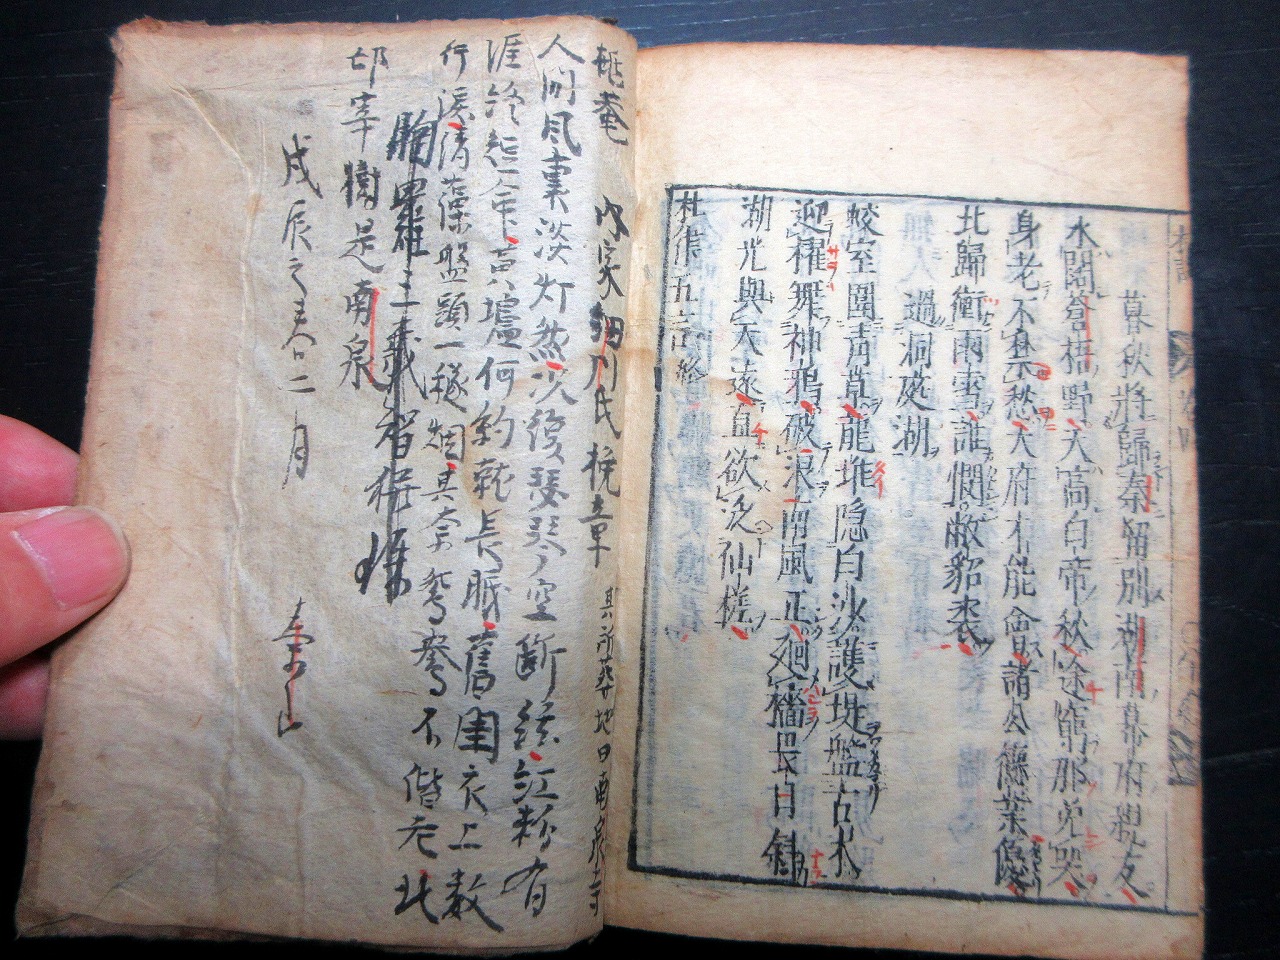 暮秋將歸秦留別湖南幕府親友
水闊蒼梧野天高白帝秋途窮那免哭
身老不禁愁大府才能會諸公德業優
北歸衝雨雪誰憫敝貂裘
過洞庭湖
蛟室圍青草龍堆隐白沙護堤盤古木
迎櫂舞神鴉破浪南風正廻檣畏日斜
湖光與天遠直欲泛仙槎
杜律五言終
内家細川氏挽章 其所葬地曰南泉寺
人間風裏淡灯然 後瑟琴空断絃紅粉有
涯終 何約 長眠舊国衣上数
行涙清藻盤頭一穟烟其奈鴛鴦不偕老北
邙宰樹是南泉
胸羅三義
戊辰之春二月